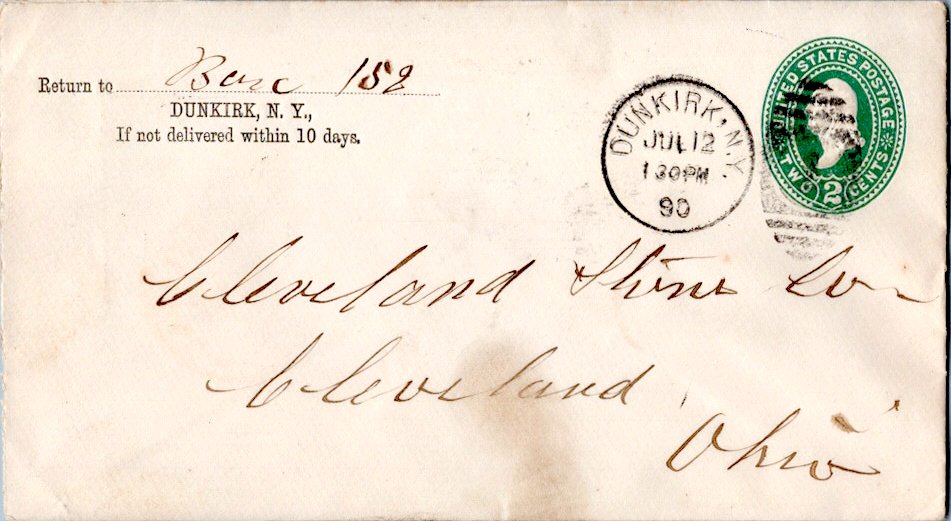 Return to Box 152
DUNKIRK, N. Y.,
If not delivered within 10 days.
DUNKIRK, N.Y.
JUL 12
130PM
90
UNITED STATES POSTAGE
TWO 2 CENTS
Cleveland Stone Co
Cleveland
Ohio